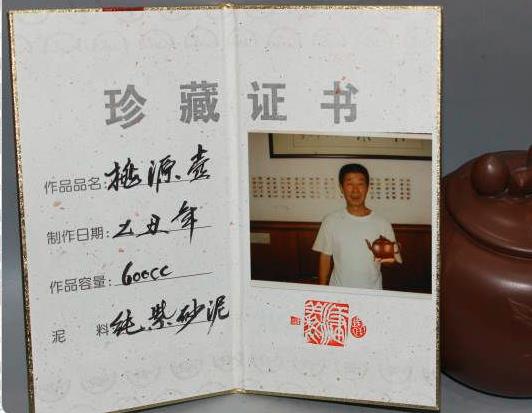 珍藏证书
作品品名：桃源壶
制作日期：乙丑年
作品容量：600cc
泥 料 纯紫砂泥